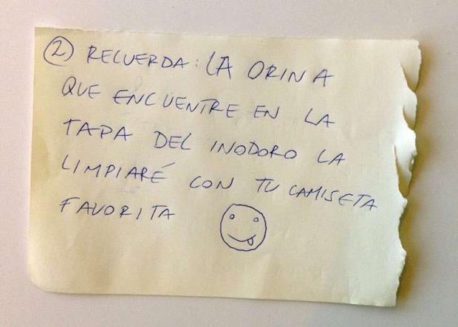 ② RECUERDA: LA ORINA
QUE ENCUENTRE EN LA
TAPA DEL INODORO LA
LIMPIARÉ CON TU CAMISETA
FAVORITA